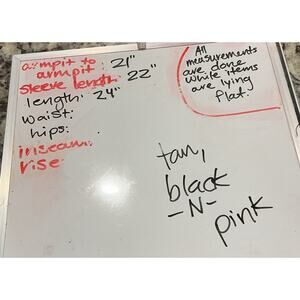 armpit to
armpit: 21"
sleeve length: 22"
length: 24"
waist:
hips:
inseam:
rise:
All
measurements
are done
while items
are lying
flat.
tan,
black
-N-
pink